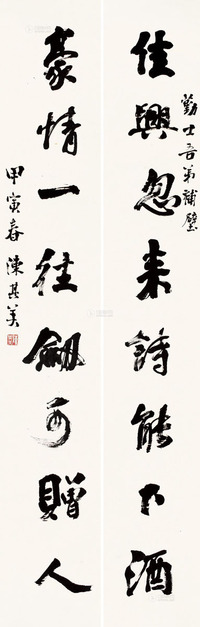 勤士吾弟補壁
佳興忽来詩能下酒
豪情一往劒可贈人
甲寅春 陳其美